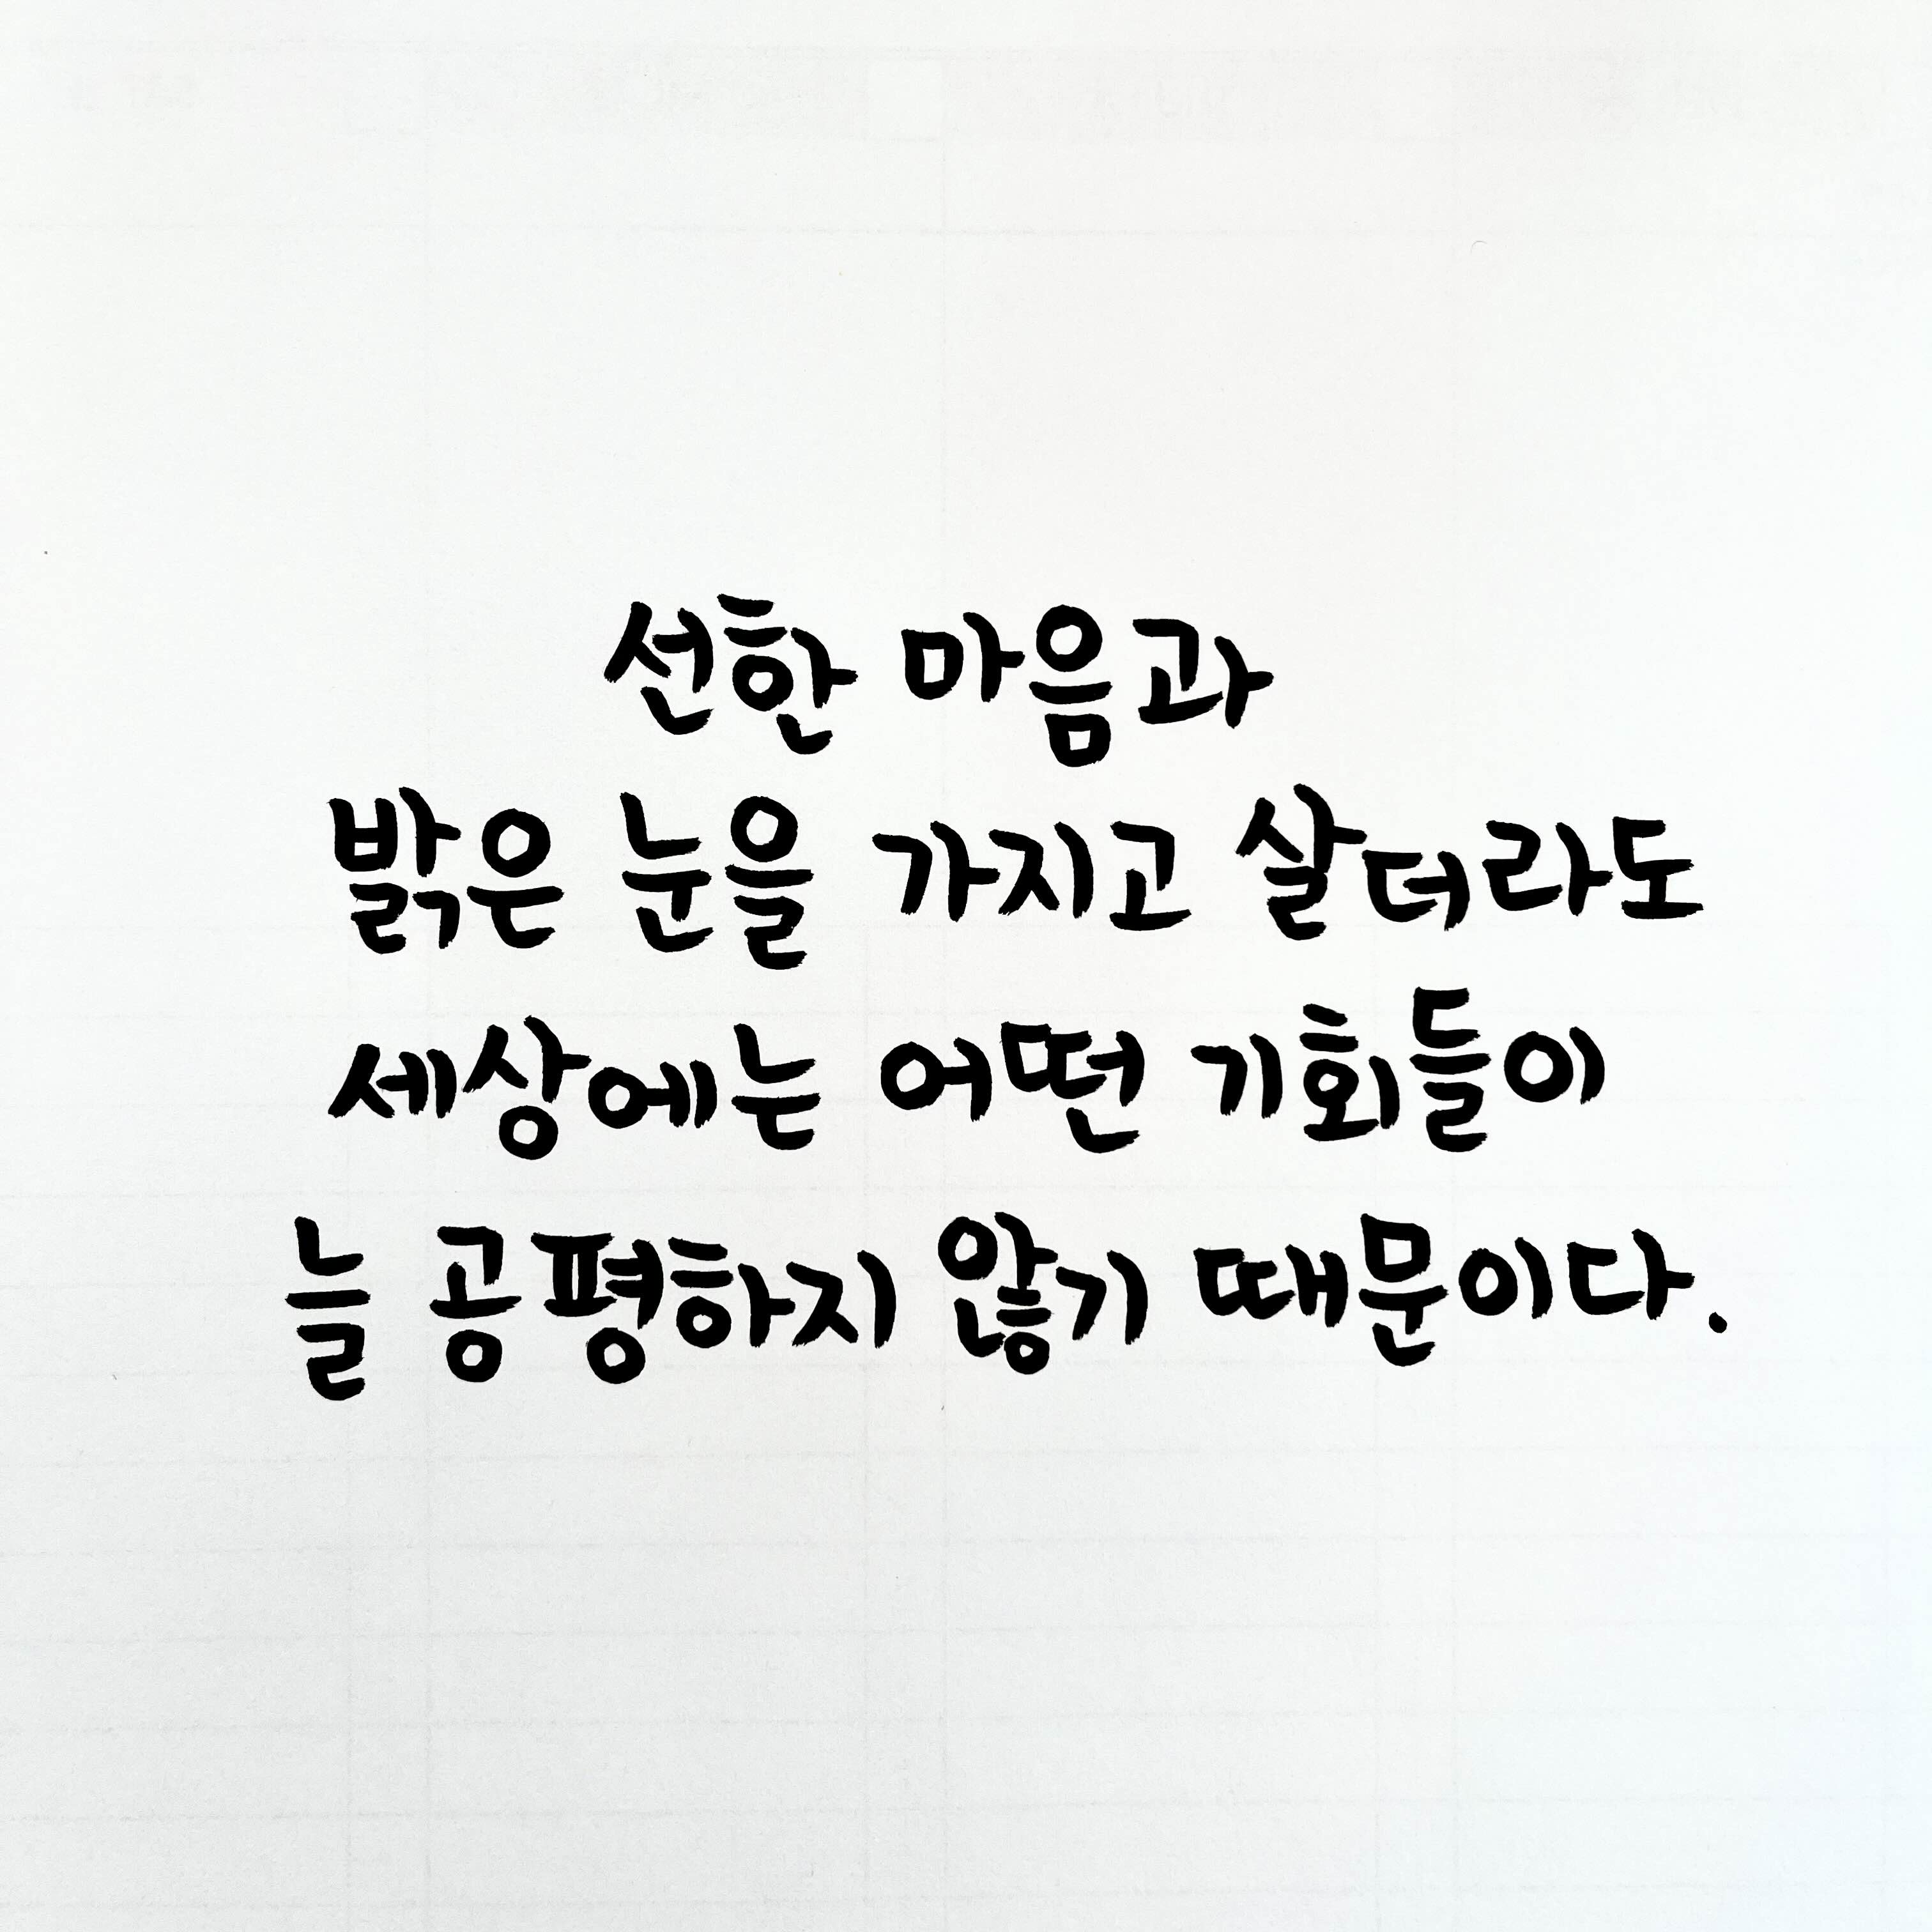 선한 마음과
밝은 눈을 가지고 살더라도
세상에는 어떤 기회들이
늘 공평하지 않기 때문이다.